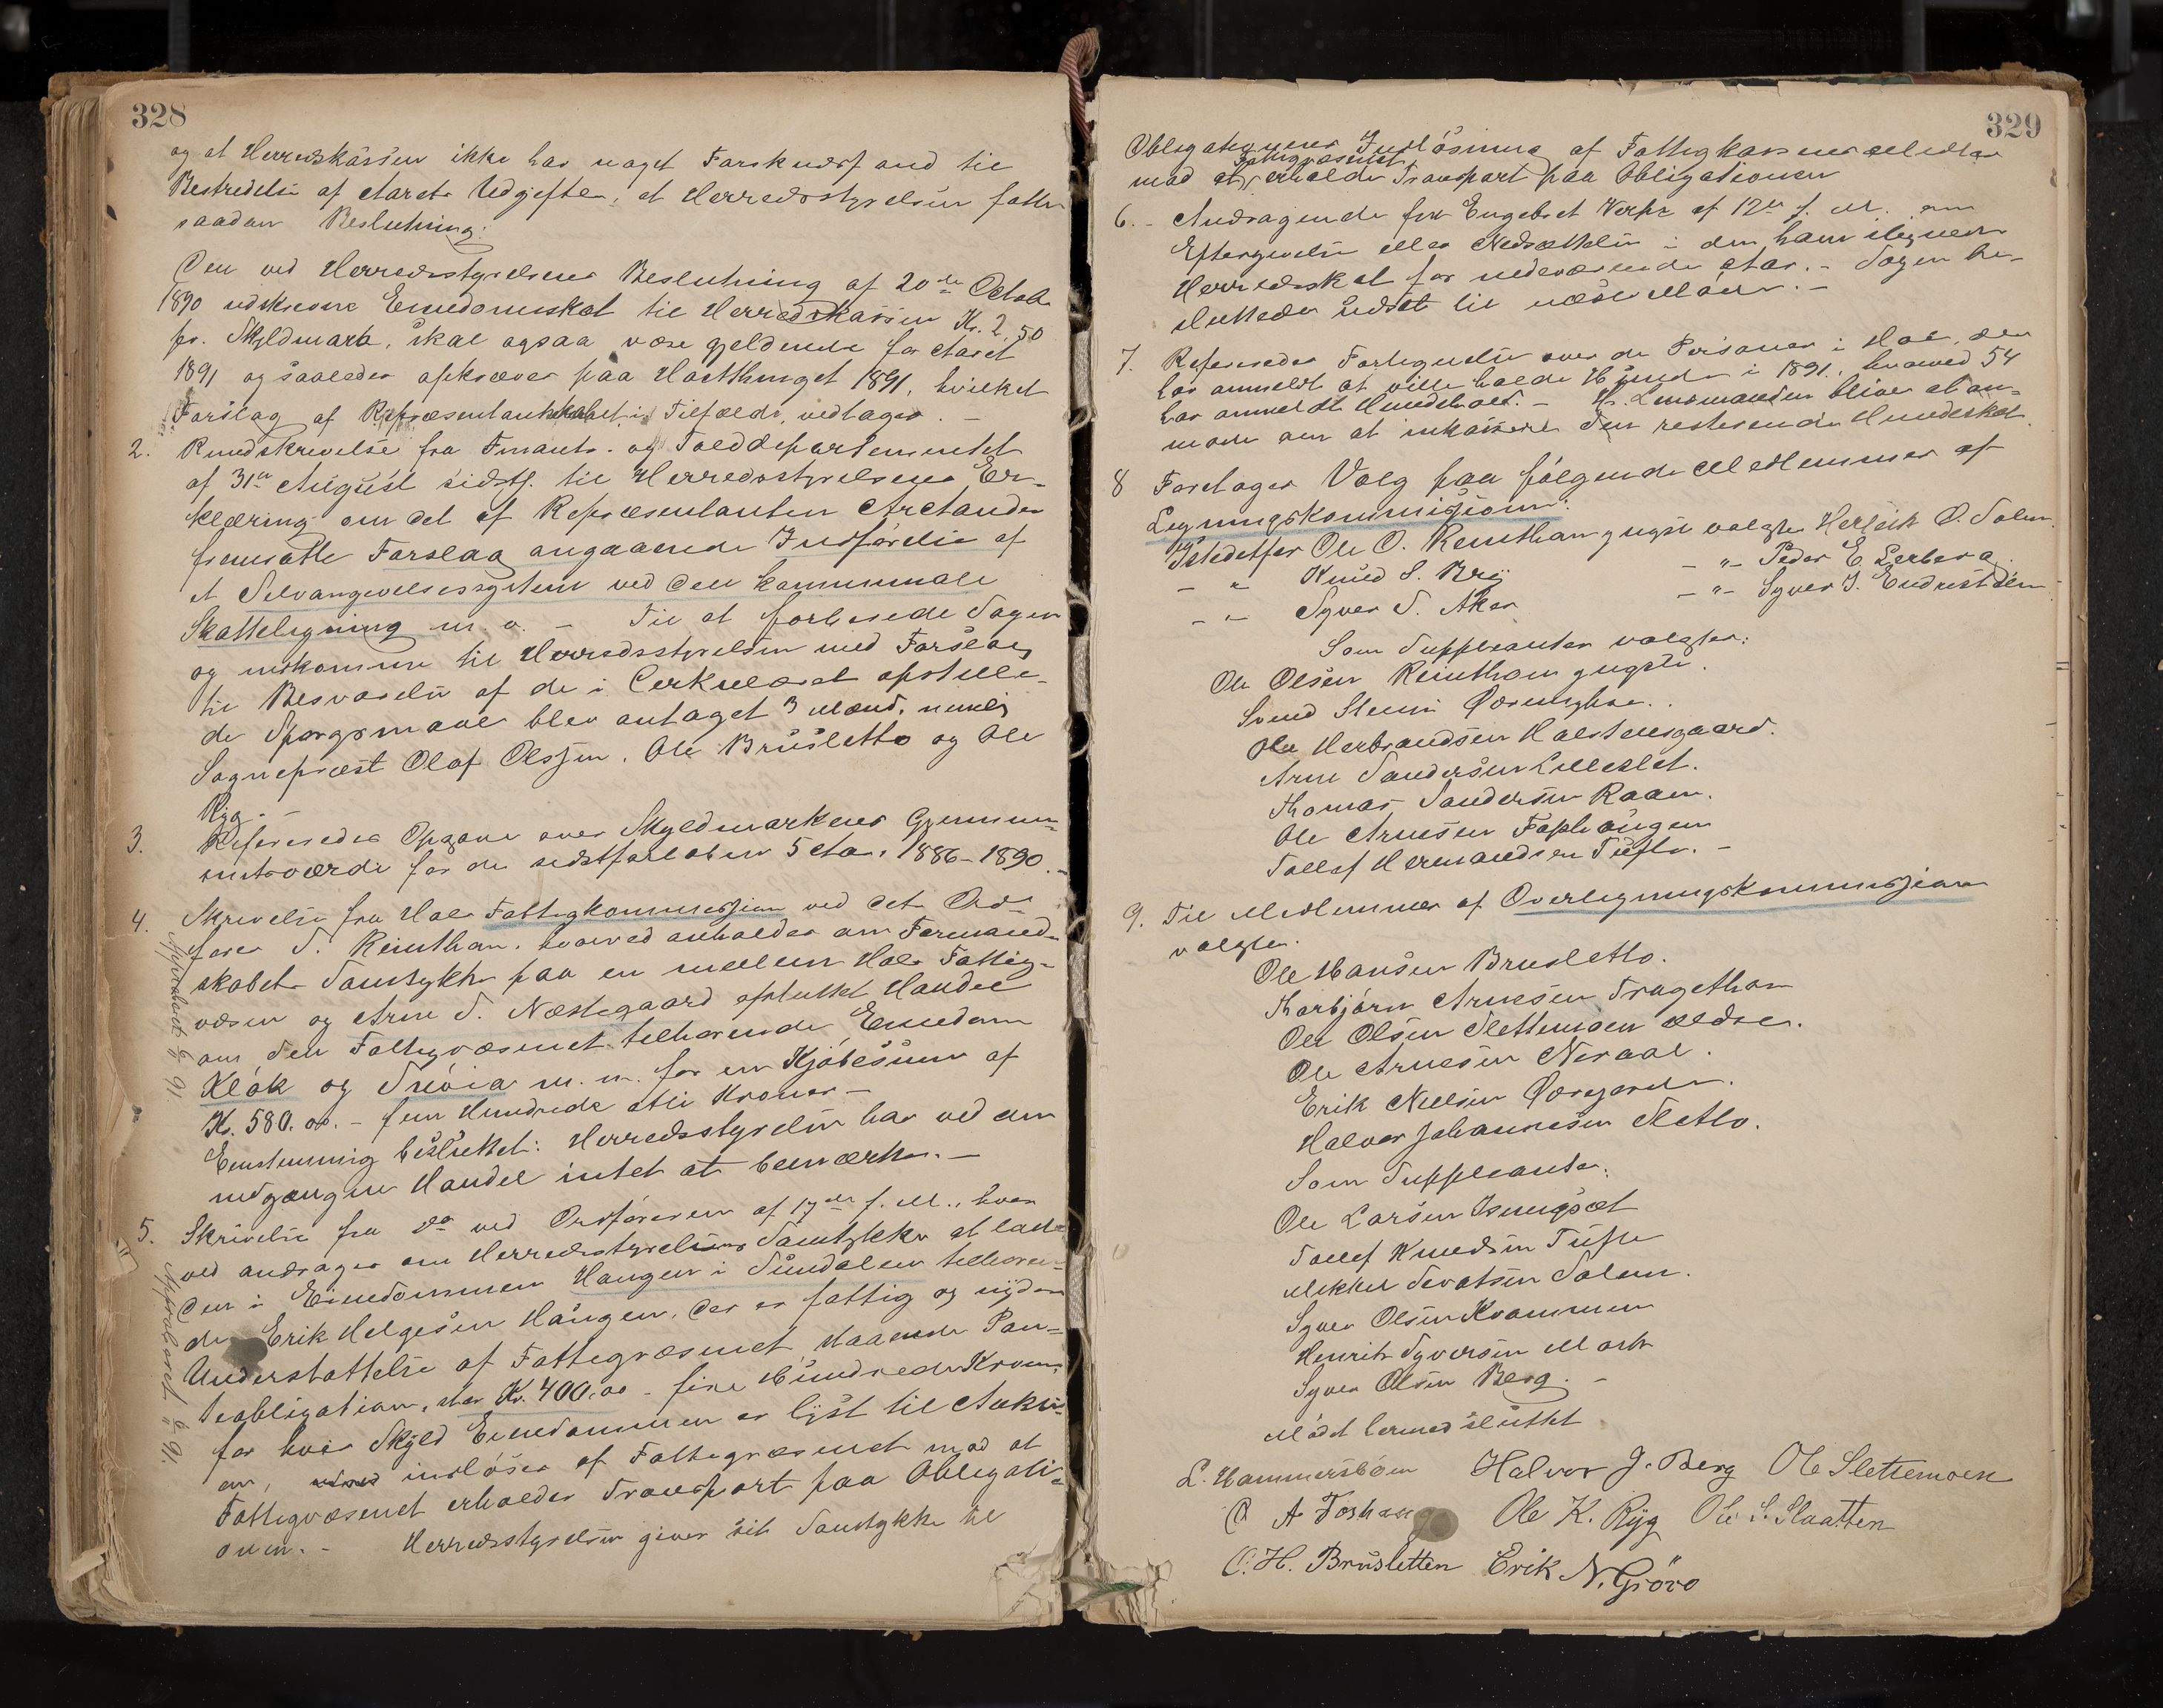 328
og at Herredskassen ikke har noget Forskudsfond til
Bestridelse af Aarets Udgifter, at Herredsstyrelsen fatter
saadan Beslutning:
Den ved Herredsstyrelsens Beslutning af 20de Octob.
1890 udskrevne Eiendomsskat til Herredskassen Kr. 2,50
pr. Skyldmark, skal ogsaa være gjeldende for Aaret
1891 og saaledes opkræves paa Høstthinget 1891, hvilket
Forslag af Repræsentantskabet i Tilfælde vedtages. -
2. Rundskrivelse fra Finants- og Tolddepartementet
af 31te August sidstl. til Herredsstyrelsens Er-
klæring om det af Repræsentanten Arctander
fremsatte Forslag angaaende Indførelse af
et Selvangivelsessystem ved den kommunale
Skatteligning m. v. - Til at forberede Sagen
og indkomme til Herredsstyrelsen med Forslag
til Besvarelse af de i Cerkulæret opstille-
de Spørgsmaal blev antaget 3 Mænd, nemlig
Sogneprest Olaf Olssen, Ole Brusletto og Ole
Ryg.
3. Refereredes Opgave over Skyldmarkens Gjennem-
snitsværdi for de sidstforløbne 5 Aar, 1886-1890. -
4. Skrivelse fra Hols Fattigkommission ved dets Ord-
fører S. Reinthon, hvorved anholdes om Formand-
skabets Samtykke paa en mellem Hols Fattig-
væsen og Arne S. Næstegaard afsluttet Handel
om den Fattigvæsenet tilhørende Eiendom
Kløk og Snøia m. m. for en Kjøbesum af
Kr. 580.00. - fem Hundrede otti Kroner -
Enstemmig besluttet: Herredsstyrelsen har ved om
nedgangne Handel intet at bemærke. -
Approberet 6/2 91.
5. Skrivelse fra do ved Ordføreren af 17de f. M., hvor
ved andrages om Herredsstyrelsens Samtykke at lade
den i Eiendommen Haugen i Sundalen tilhøren-
de Erik Helgesen Haugen, der er fattig og nyder
Understøttelse af Fattigvæsenet, staaende Pan-
teobligation, stor Kr. 400.00 - fire Hundrede Kroner
for hvis Skyld Eiendommen er lyst til Auksi-
on, indløses af Fattigvæsenet mod at
Fattigvæsenet erholder Transport paa Obligati-
onen. - Herredsstyrelsen giver sit Samtykke til
Approberet 6/2 91.
329
Obligationens Indløsning af Fattigkassens Midler
mod at Fattigvæsenet erholder Transport paa Obligationen
6. - Andragende fra Engebret Verpe af 12te f. M. om
Eftergivelse eller Nedsættelse i den ham ilignede
Herredsskat for nedeværende Aar. - Sagen be-
sluttedes udsat til næste Møde. -
7. Refereredes Fortegnelse over de Personer i Hol, der
har anmeldt at ville holde Hunde i 1891, hvorved 54
har anmeldt Hundehold. - Hr. Lensmanden bliver at an-
mode om at inkassere den resterende Hundeskat.
8 Foretages Valg paa følgende Medlemmer af
Ligningskommissionen:
Istedetfor Ole O. Reinthon yngre valgtes Herleik O. Solem.
- " Knud S. Bry - " - Peder E. Lerberg
- " Syver S. Aker - " - Syver J. Endrestølen
Som Suppleanter valgtes:
Ole Olsen Reinthon yngste.
Svend Slemmi
Ole Herbrandsen Holstensgaard.
Arne Sandersen Lilleslet.
Thomas Sandersen Raaen.
Ole Arnesen Foshaugen
Tollef Hermandsen Tufte. -
9. Til Medlemmer af Overligningskommissionen
valgtes.
Ole Hansen Brusletto.
Thorbjørn Arnesen Tragethon
Ole Olsen Slettemoen ældre.
Ole Arnesen Neraal.
Erik Nielsen
Halvor Johannesen Sletto.
Som Suppleanter:
Ole Larsen
Tollef Knudsen Tufte
Mikkel Sevatsen Solem.
Syver Olsen Kvammen
Henrik Syversen Moen
Syver Olsen Berg. -
Mødet hermed sluttet
L. Hammersbøen Halvor J. Berg Ole Slettemoen
O A Foshaug Ole K. Ryg Ole S. Slaatten
O. H. Bruslette Erik N. Grøvo